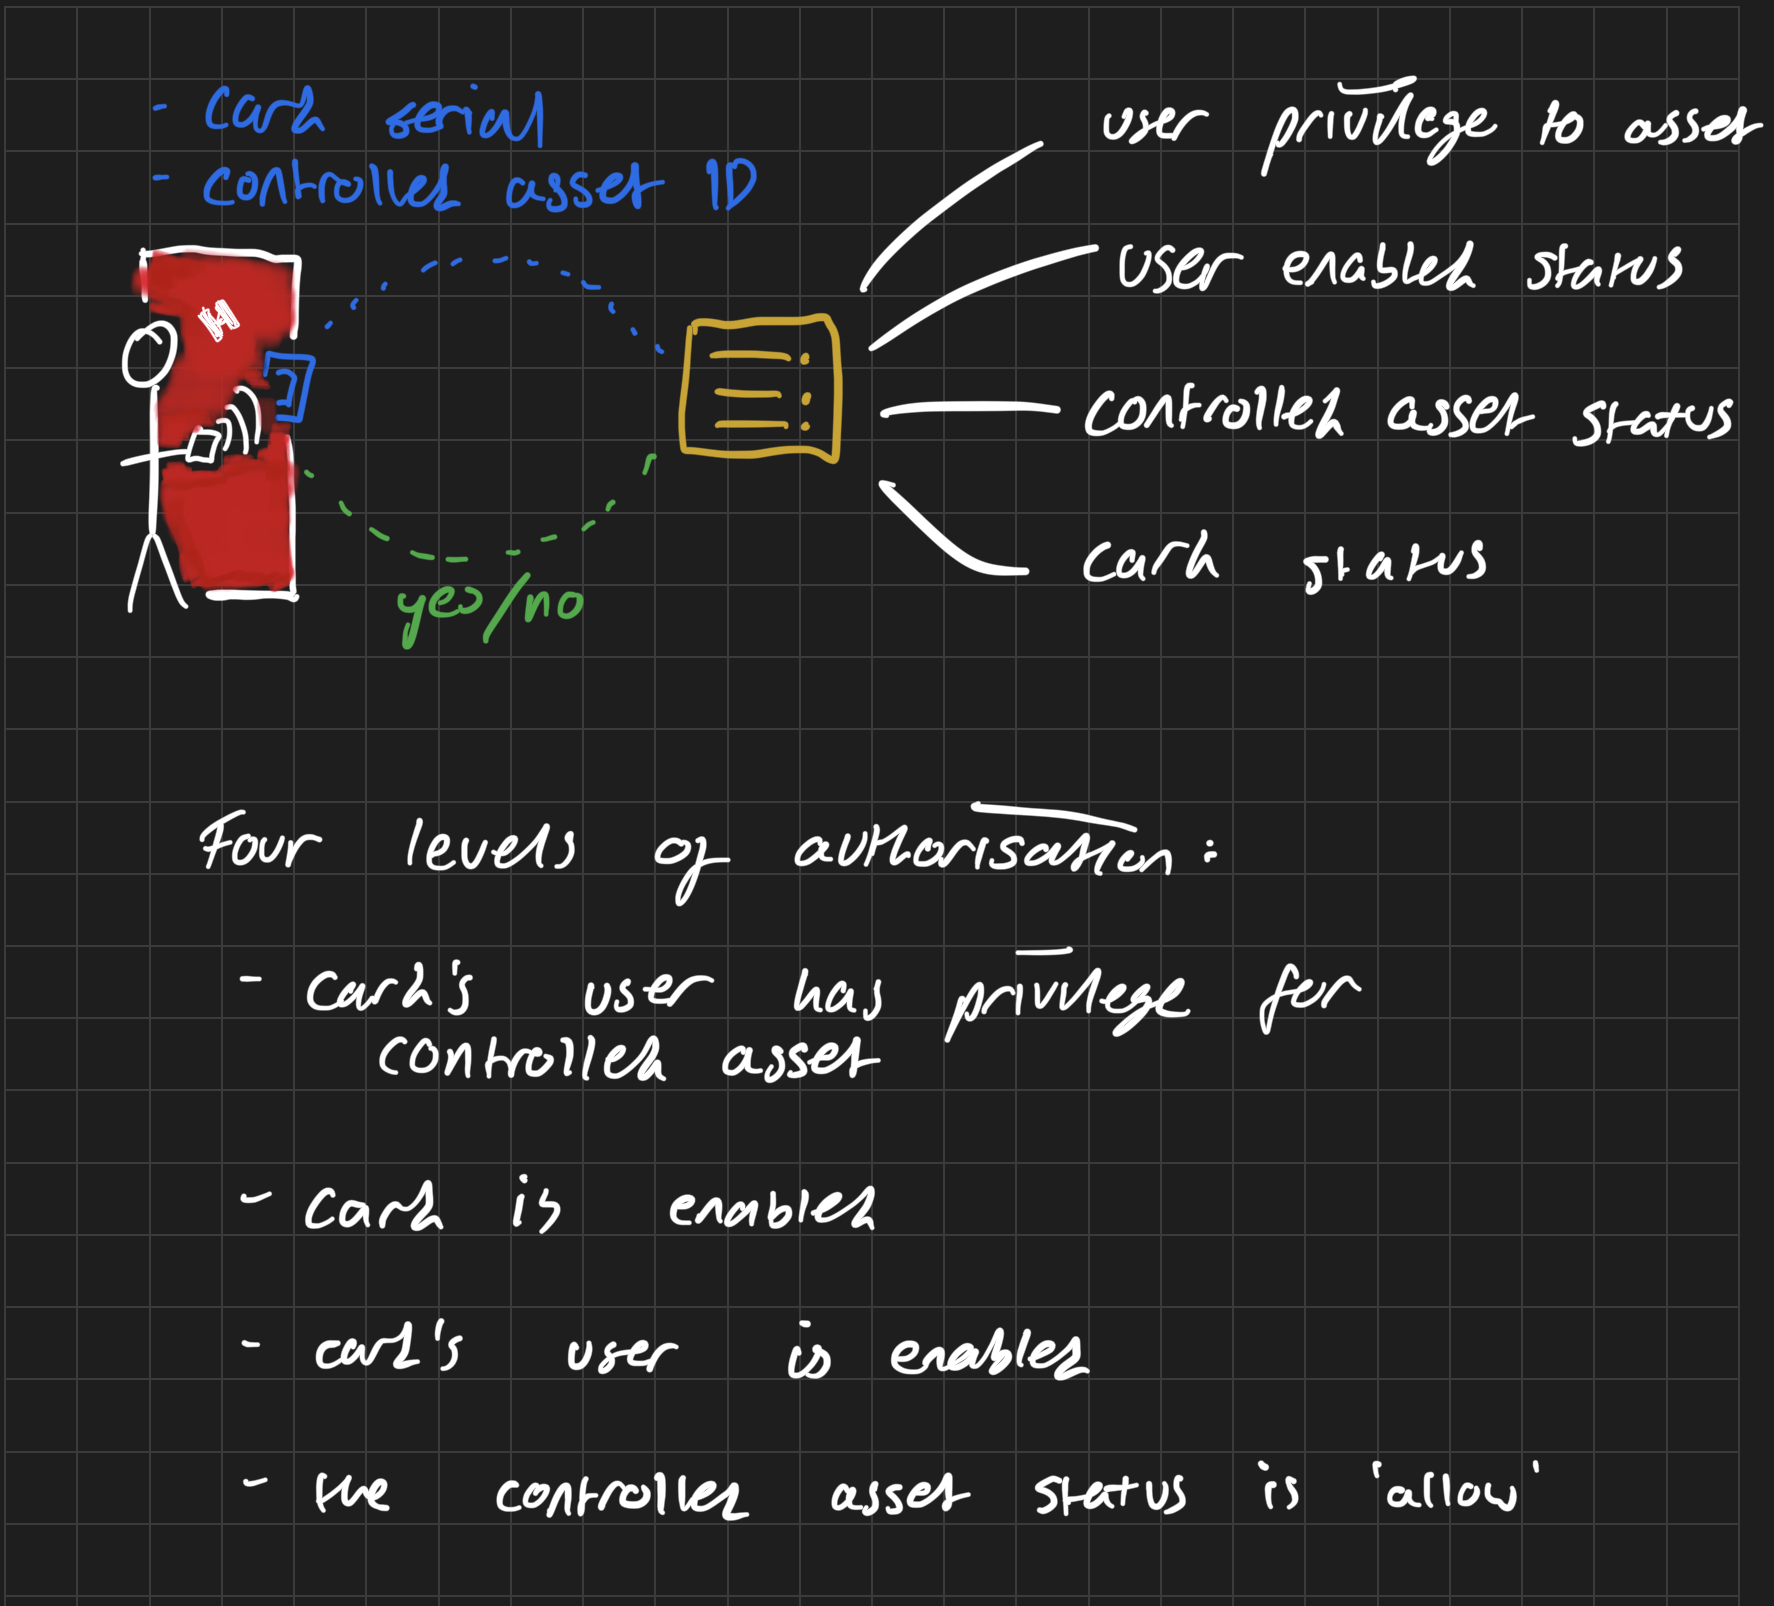 - card serial
- controlled asset ID
user privilege to asset
user enabled status
controlled asset status
card status
yes/no
Four levels of authorisation:
- card's user has privilege for
controlled asset
- card is enabled
- card's user is enabled
- the controlled asset status is 'allow'